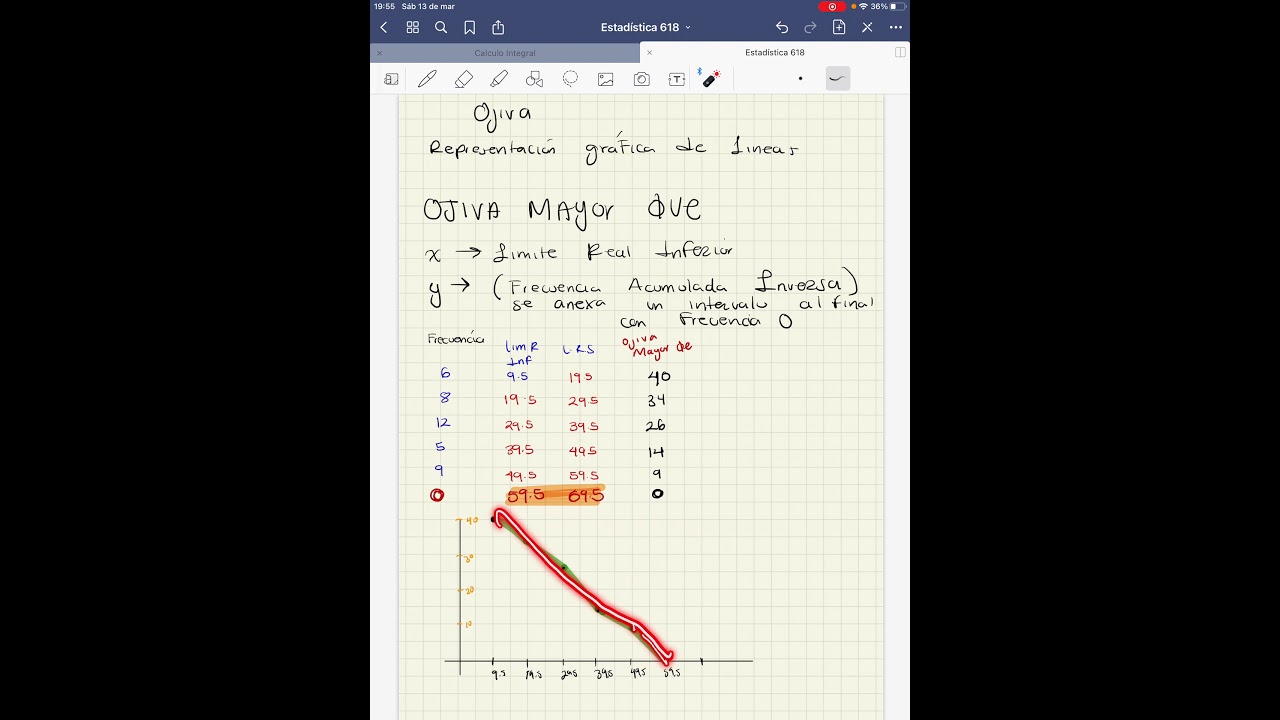 19:55 Sáb 13 de mar 36%
Estadística 618
Calculo Integral Estadística 618
Ojiva
Representación gráfica de lineas
OJIVA MAYOR QUE
x → Limite Real Inferior
y → (Frecuencia Acumulada Inversa)
se anexa un intervalo al final
con Frecuencia 0
Frecuencia Lim R Inf L.R.S Ojiva Mayor de
6 9.5 19.5 40
8 19.5 29.5 34
12 29.5 39.5 26
5 39.5 49.5 14
9 49.5 59.5 9
0 59.5 69.5 0
40
30
20
10
9.5 19.5 29.5 39.5 49.5 59.5